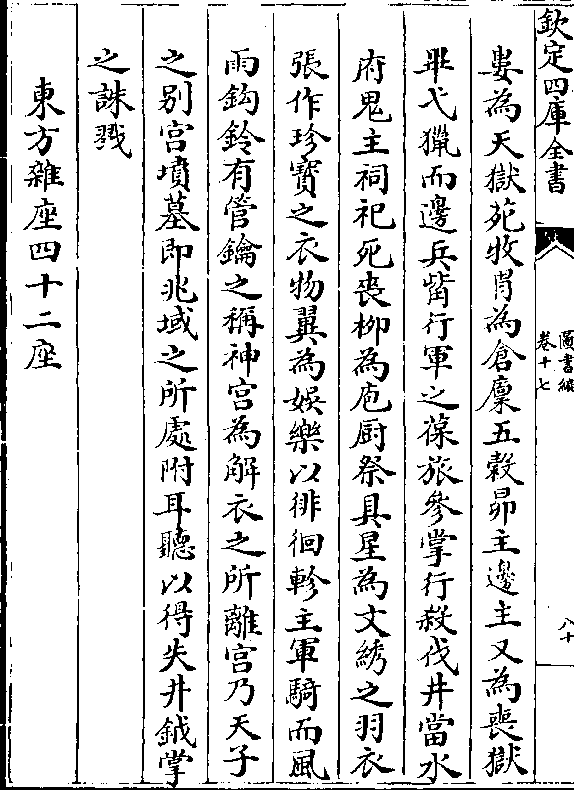 欽定四庫全書
圖書編
卷十七
八十
婁為天獄苑牧胃為倉廩五穀昴主邊主又為喪獄
畢弋獵而邊兵觜行軍之葆旅參掌行殺伐井當水
府鬼主祠祀死喪柳為庖厨祭具星為文綉之羽衣
張作珍寳之衣物翼為娛樂以徘徊軫主軍騎而風
雨鈎鈴有管鑰之稱神宫為解衣之所離宫乃天子
之别宫墳墓即兆域之所處附耳聽以得失井鉞掌
之誅戮
東方雜座四十二座